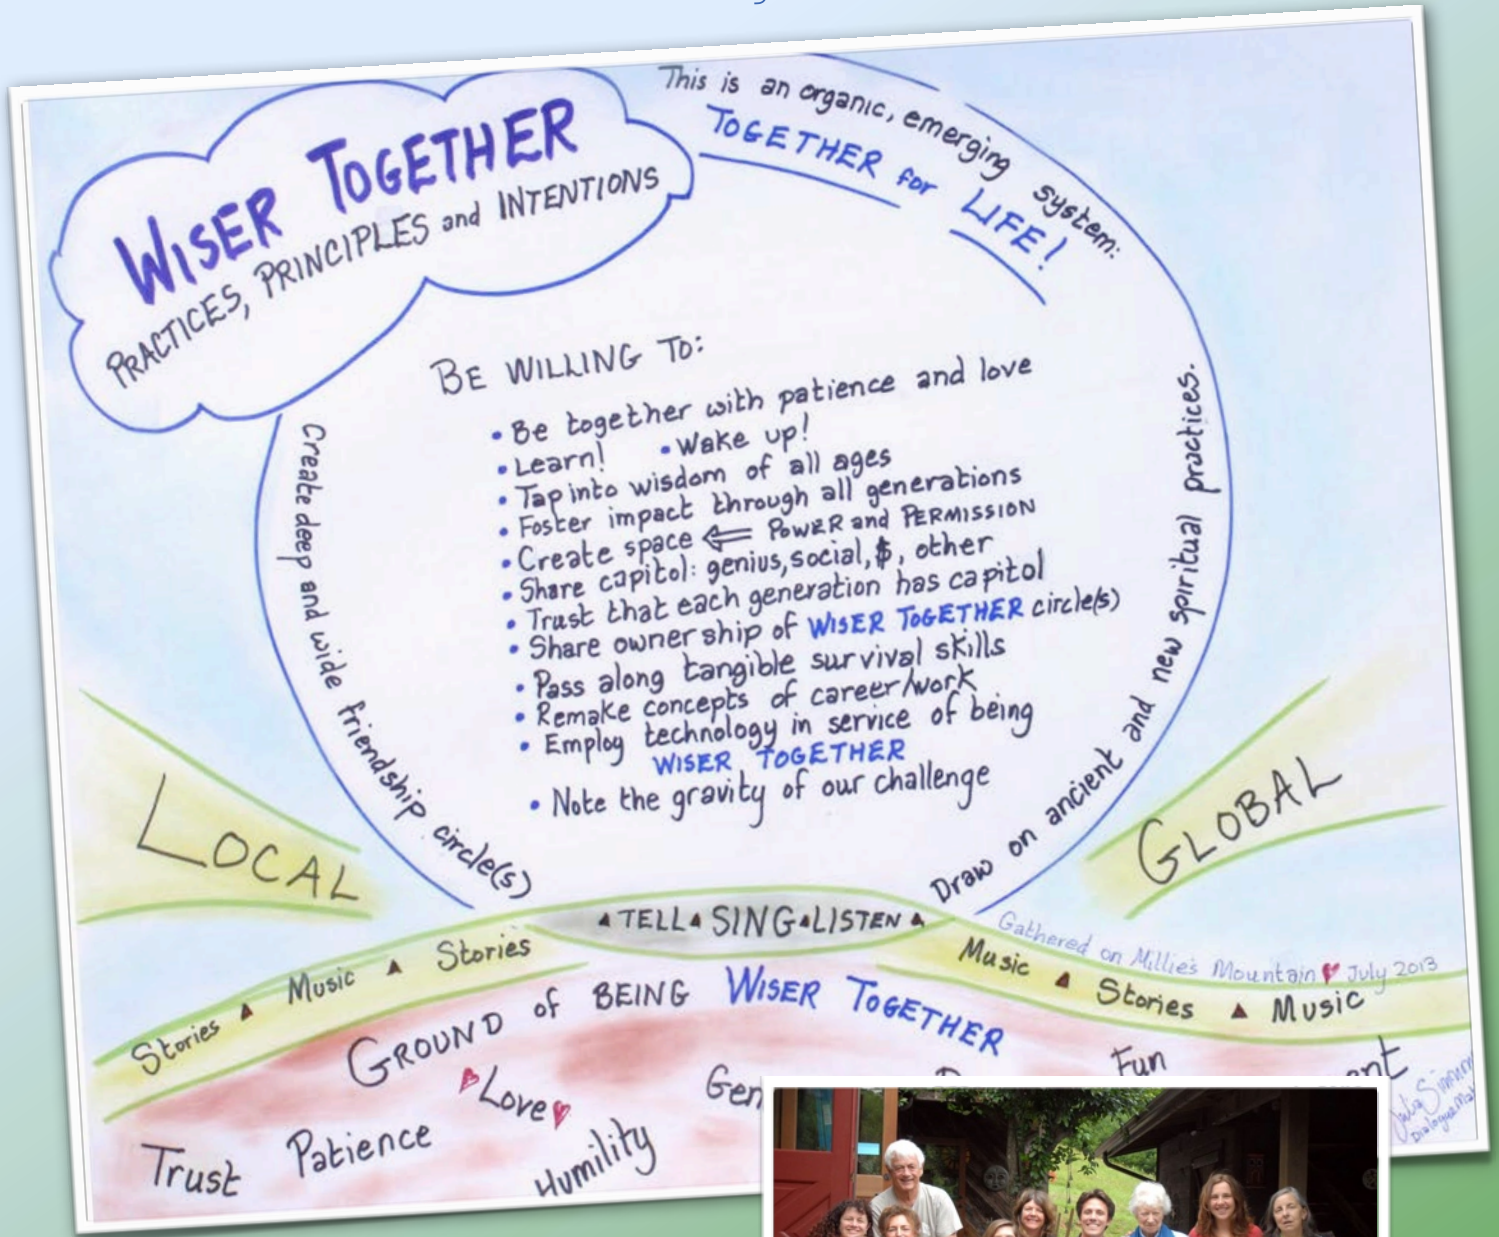 WISER TOGETHER
PRACTICES, PRINCIPLES and INTENTIONS
This is an organic, emerging system:
TOGETHER for LIFE!
BE WILLING TO:
• Be together with patience and love
• Learn! • Wake up!
• Tap into wisdom of all ages
• Foster impact through all generations
• Create space ⇐ POWER and PERMISSION
• Share capitol: genius, social, $, other
• Trust that each generation has capitol
• Share ownership of WISER TOGETHER circle(s)
• Pass along tangible survival skills
• Remake concepts of career/work
• Employ technology in service of being
WISER TOGETHER
• Note the gravity of our challenge
Create deep and wide friendship circle(s)
Draw on ancient and new spiritual practices.
LOCAL
GLOBAL
▲ TELL ▲ SING ▲ LISTEN ▲
Stories ▲ Music ▲ Stories
Music ▲ Stories ▲ Music
Gathered on Millie's Mountain ♥ July 2013
GROUND of BEING WISER TOGETHER
Love
Fun
Trust
Patience
Humility